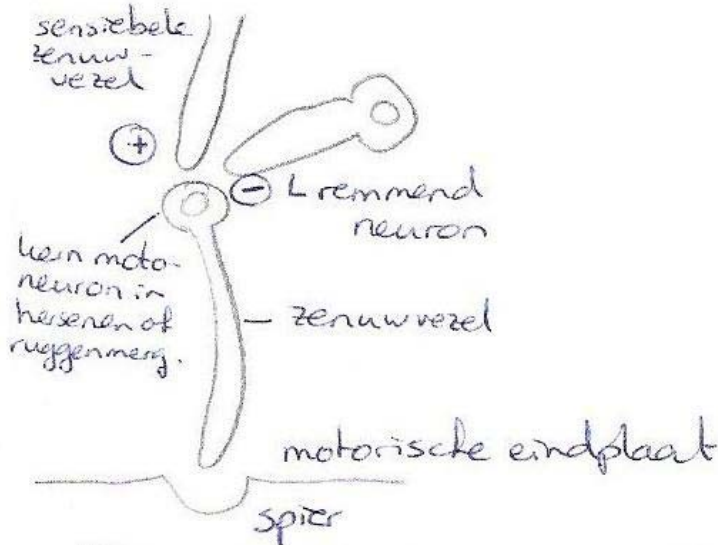 sensiebele
zenuw-
vezel
+
-
remmend
neuron
kern moto-
neuron in
hersenen of
ruggenmerg.
zenuwvezel
motorische eindplaat
spier